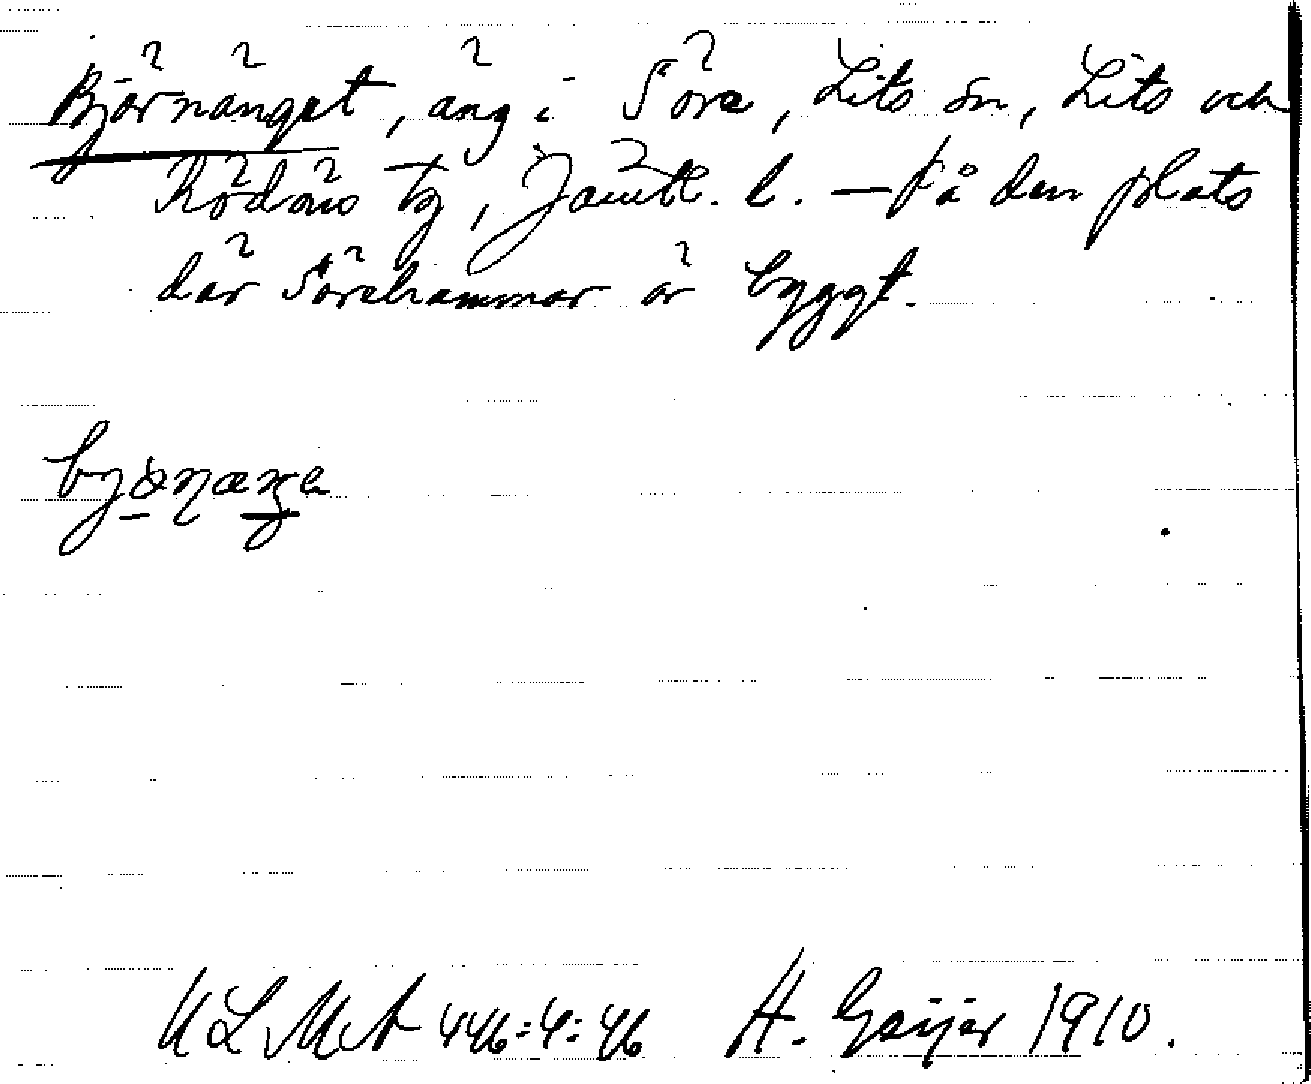 Björnänget, äng i Söre, Lits sn, Lits och
Rödöns tg, Jämtl. l. — På den plats
där Sörehammar är byggt.
ULMA 446:4:46 H. Geijer 1910.